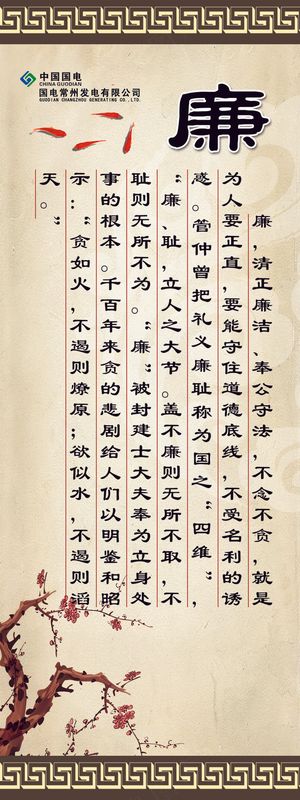 中国国电
CHINA GUODIAN
国电常州发电有限公司
GUODIAN CHANGZHOU GENERATING CO., LTD.
廉
廉，清正廉洁、奉公守法，不念不贪，就是
为人要正直，要能守住道德底线，不受名利的诱
惑。管仲曾把礼义廉耻称为国之“四维”，
“廉、耻，立人之大节。盖不廉则无所不取，不
耻则无所不为。”“廉”被封建士大夫奉为立身处
事的根本。千百年来贪的悲剧给人们以明鉴和昭
示：“贪如火，不遏则燎原；欲似水，不遏则滔
天。”